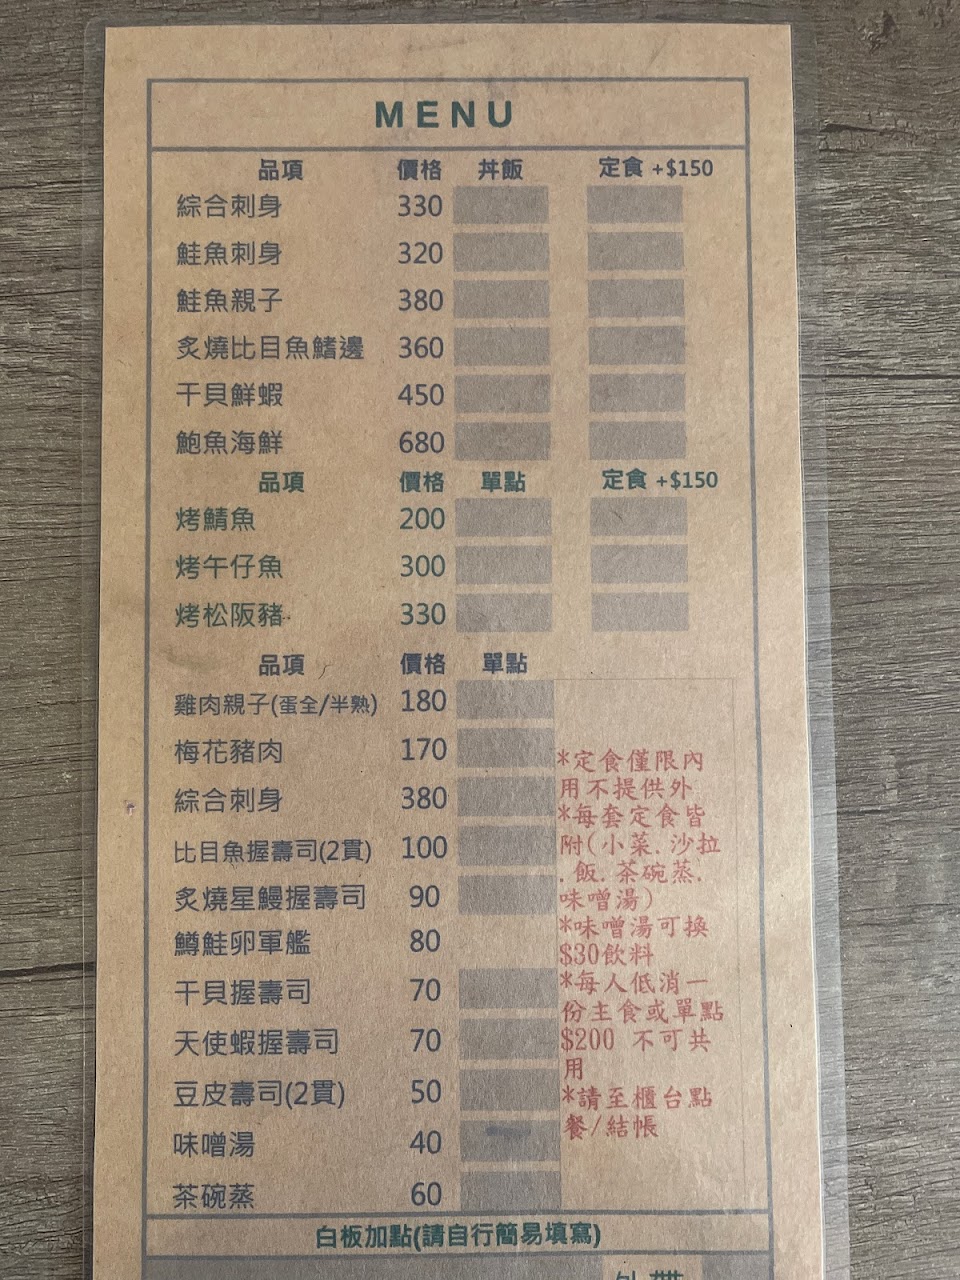 MENU
品項 價格 丼飯 定食 +$150
綜合刺身 330
鮭魚刺身 320
鮭魚親子 380
炙燒比目魚鰭邊 360
干貝鮮蝦 450
鮑魚海鮮 680
品項 價格 單點 定食 +$150
烤鯖魚 200
烤午仔魚 300
烤松阪豬 330
品項 價格 單點
雞肉親子(蛋全/半熟) 180
梅花豬肉 170
綜合刺身 380
比目魚握壽司(2貫) 100
炙燒星鰻握壽司 90
鱒鮭卵軍艦 80
干貝握壽司 70
天使蝦握壽司 70
豆皮壽司(2貫) 50
味噌湯 40
茶碗蒸 60
*定食僅限內
用不提供外
*每套定食皆
附(小菜.沙拉
.飯.茶碗蒸.
味噌湯)
*味噌湯可換
$30飲料
*每人低消一
份主食或單點
$200 不可共
用
*請至櫃台點
餐/結帳
白板加點(請自行簡易填寫)